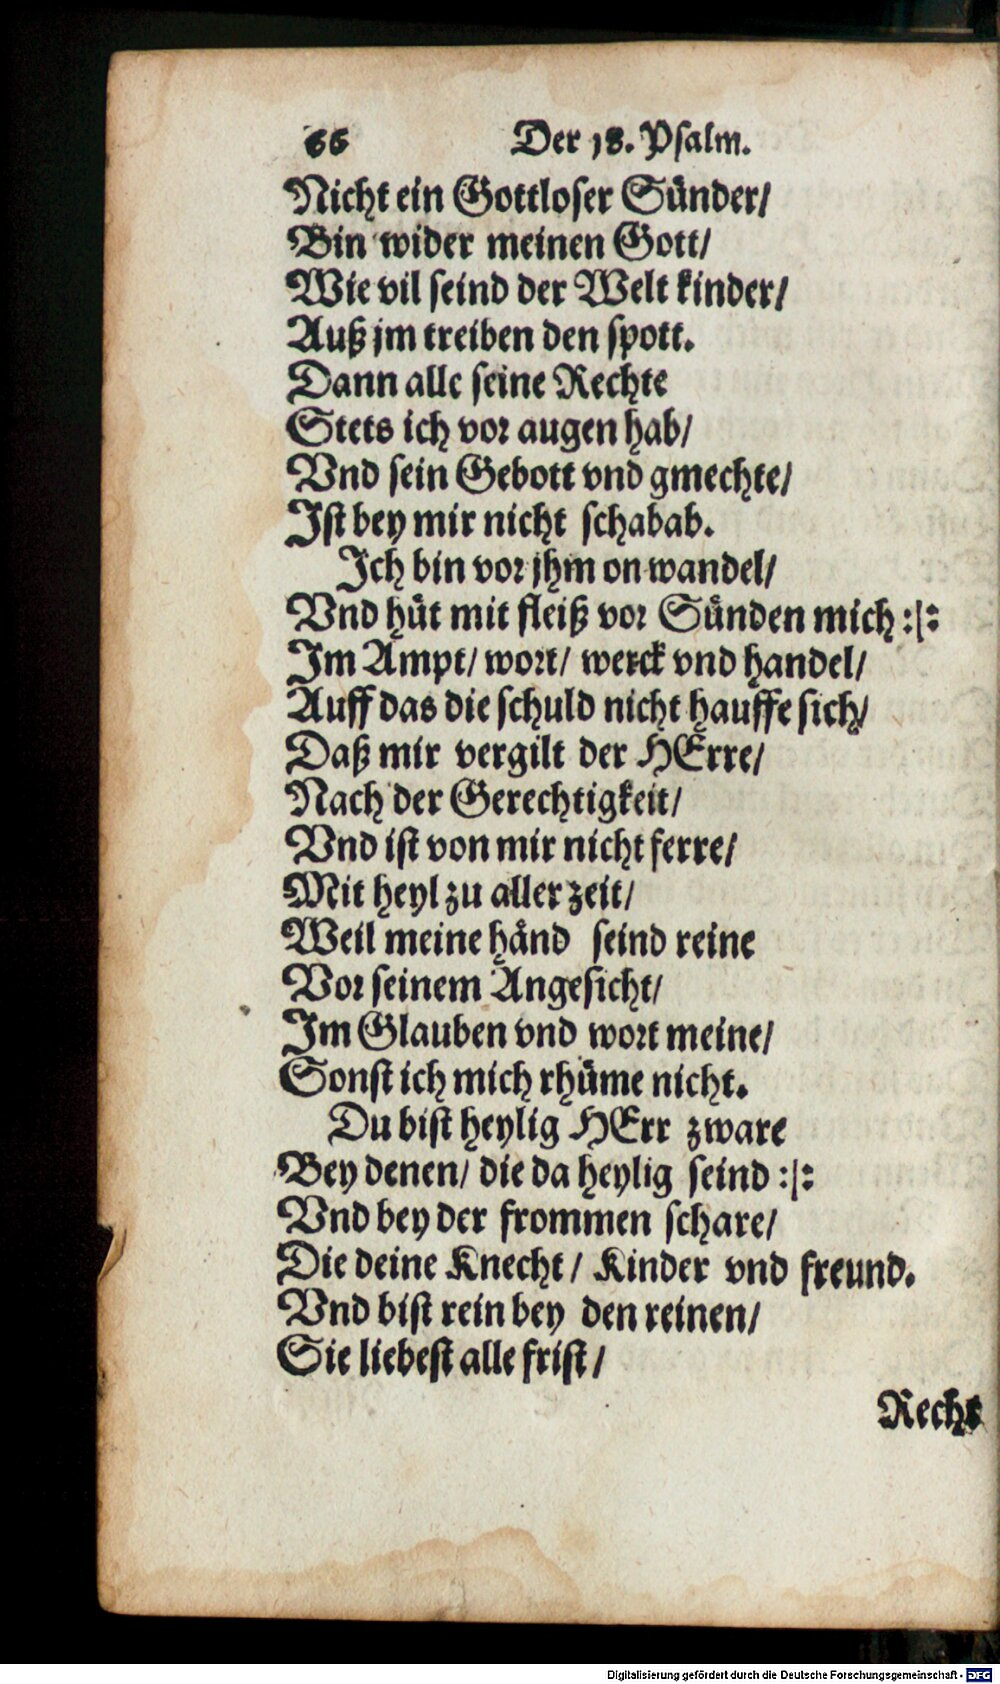 66 Der 18. Psalm.
Nicht ein Gottloser Sünder/
Bin wider meinen Gott/
Wie vil seind der Welt kinder/
Auß jm treiben den spott.
Dann alle seine Rechte
Stets ich vor augen hab/
Vnd sein Gebott vnd gmechte/
Ist bey mir nicht schabab.
Ich bin vor jhm on wandel/
Vnd hüt mit fleiß vor Sünden mich :|:
Im Ampt/ wort/ werck vnd handel/
Auff das die schuld nicht hauffe sich/
Daß mir vergilt der HErre/
Nach der Gerechtigkeit/
Vnd ist von mir nicht ferre/
Mit heyl zu aller zeit/
Weil meine händ seind reine
Vor seinem Angesicht/
Im Glauben vnd wort meine/
Sonst ich mich rhüme nicht.
Du bist heylig HErr zware
Bey denen/ die da heylig seind :|:
Vnd bey der frommen schare/
Die deine Knecht/ Kinder vnd freund.
Vnd bist rein bey den reinen/
Sie liebest alle frist/
Recht
Digitalisierung gefördert durch die Deutsche Forschungsgemeinschaft - DFG